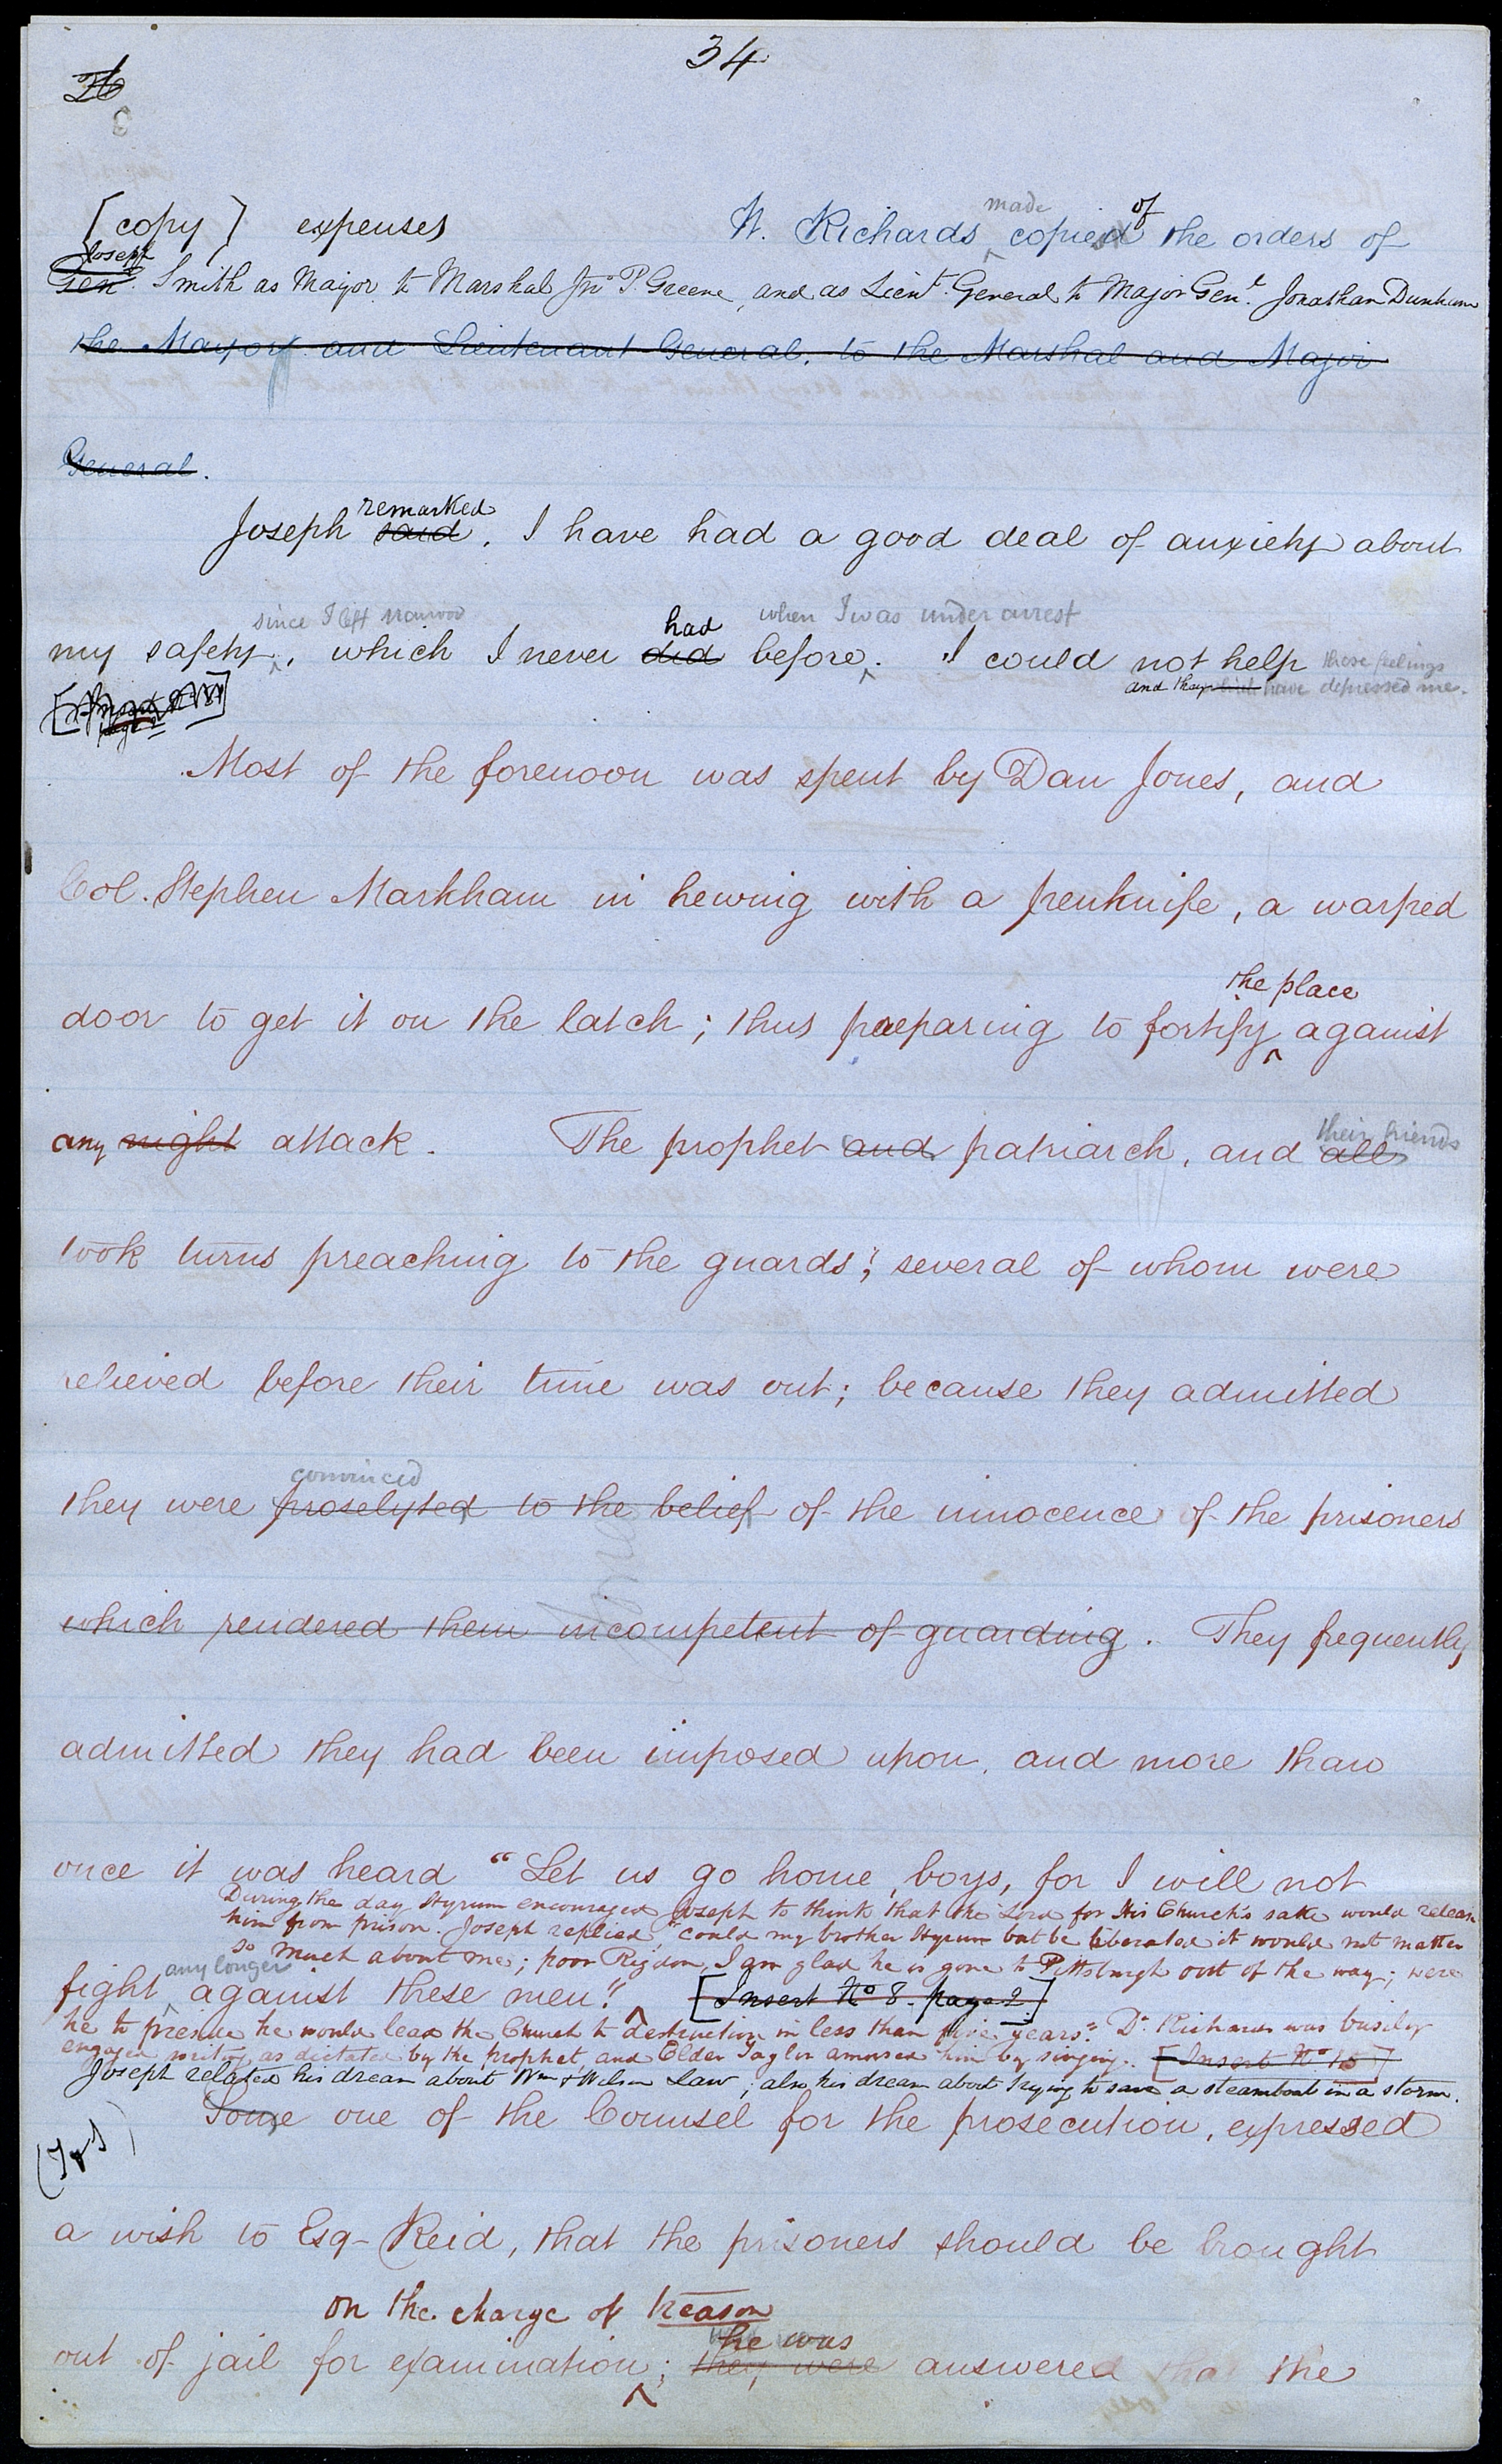 34
26
[copy] expenses W. Richards made copied of the orders of
Joseph
Gen. Smith as Mayor to Marshal Jno. P. Greene, and as Lieut. General to Major Genl. Jonathan Dunham
the Mayor and Lieutenant General, to the Marshal and Major
General.
remarked
Joseph said, I have had a good deal of anxiety about
since I left Nauvoo had when I was under arrest
my safety, which I never did before. I could not help these feelings
and they have depressed me.
Most of the forenoon was spent by Dan Jones, and
Col. Stephen Markham in hewing with a penknife, a warped
the place
door to get it on the latch; thus preparing to fortify against
their friends
any night attack. The prophet and patriarch, and all
took turns preaching to the guards; several of whom were
relieved before their time was out; because they admitted
convinced
they were proselyted to the belief of the innocence of the prisoners
which rendered them incompetent of guarding. They frequently
admitted they had been imposed upon, and more than
once it was heard "Let us go home, boys, for I will not
During the day Hyrum encouraged Joseph to think that the Lord for His Church's sake would release
him from prison. Joseph replied, "could my brother Hyrum but be liberated it would not matter
so much about me; poor Rigdon, I am glad he is gone to Pittsburgh out of the way; were
any longer
fight against these men." [Insert No 8. page 2]
he to preside he would lead the Church to destruction in less than five years." Dr. Richards was busily
engaged writing as dictated by the prophet, and Elder Taylor amused him by singing. [Insert No 15]
Joseph related his dream about Wm & Wilson Law; also his dream about trying to save a steamboat in a storm.
Some one of the Counsel for the prosecution, expressed
a wish to Esq- Reid, that the prisoners should be brought
on the charge of treason
he was
out of jail for examination; they were answered that the